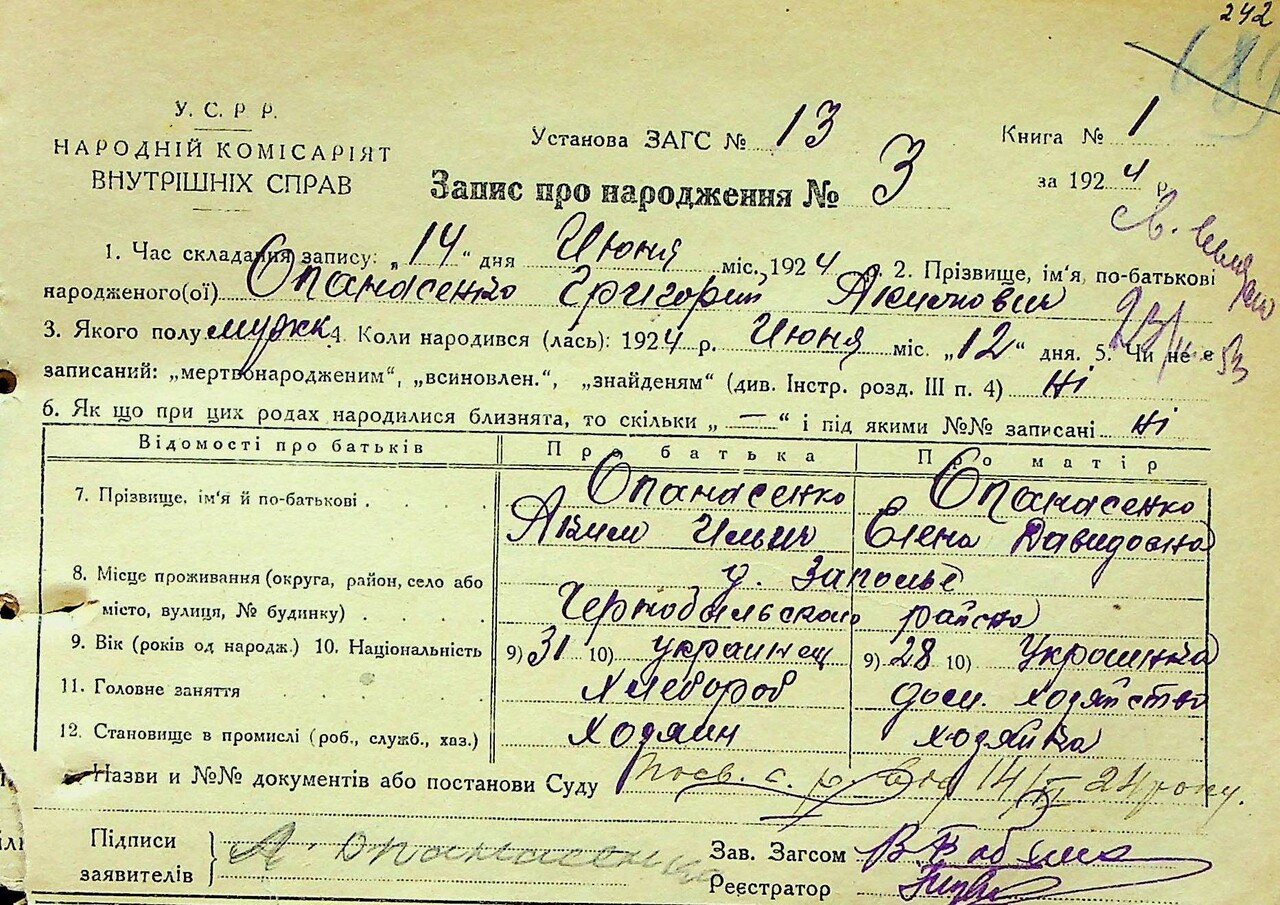 242
У. С. Р Р.
НАРОДНІЙ КОМІСАРІЯТ
ВНУТРІШНІХ СПРАВ
Установа ЗАГС № 13
Книга № 1
Запис про народження № 3
за 1924 р.
1. Час складання запису: „14“ дня Июня міс. 1924 р. 2. Прізвище, ім'я, по-батькові
народженого(ої) Опанасенко Григорий Акимович
23/
53
3. Якого полу мужк 4. Коли народився (лась): 1924 р. Июня міс. „12“ дня. 5. Чи не є
записаний: „мертвонародженим“, „всиновлен.“, „знайденям“ (див. Інстр. розд. III п. 4) Ні
6. Як що при цих родах народилися близнята, то скільки „—“ і під якими №№ записані Ні
Відомості про батьків Про батька Про матір
7. Прізвище, ім'я й по-батькові . Опанасенко Опанасенко
Аким Ильич Елена Давидовна
8. Місце проживання (округа, район, село або д. Заполье
місто, вулиця, № будинку) Чернобыльского района
9. Вік (років од народж.) 10. Національність 9) 31 10) украинец 9) 28 10) Украинка
11. Головне заняття Хлебороб дом. хозяйство
12. Становище в промислі (роб., служб., хаз.) Хозяин хозяйка
Назви и №№ документів або постанови Суду Посв. с. р. від 14/VI 24 року.
Підписи
заявителів
А. Опанасенко
Зав. Загсом
Реєстратор